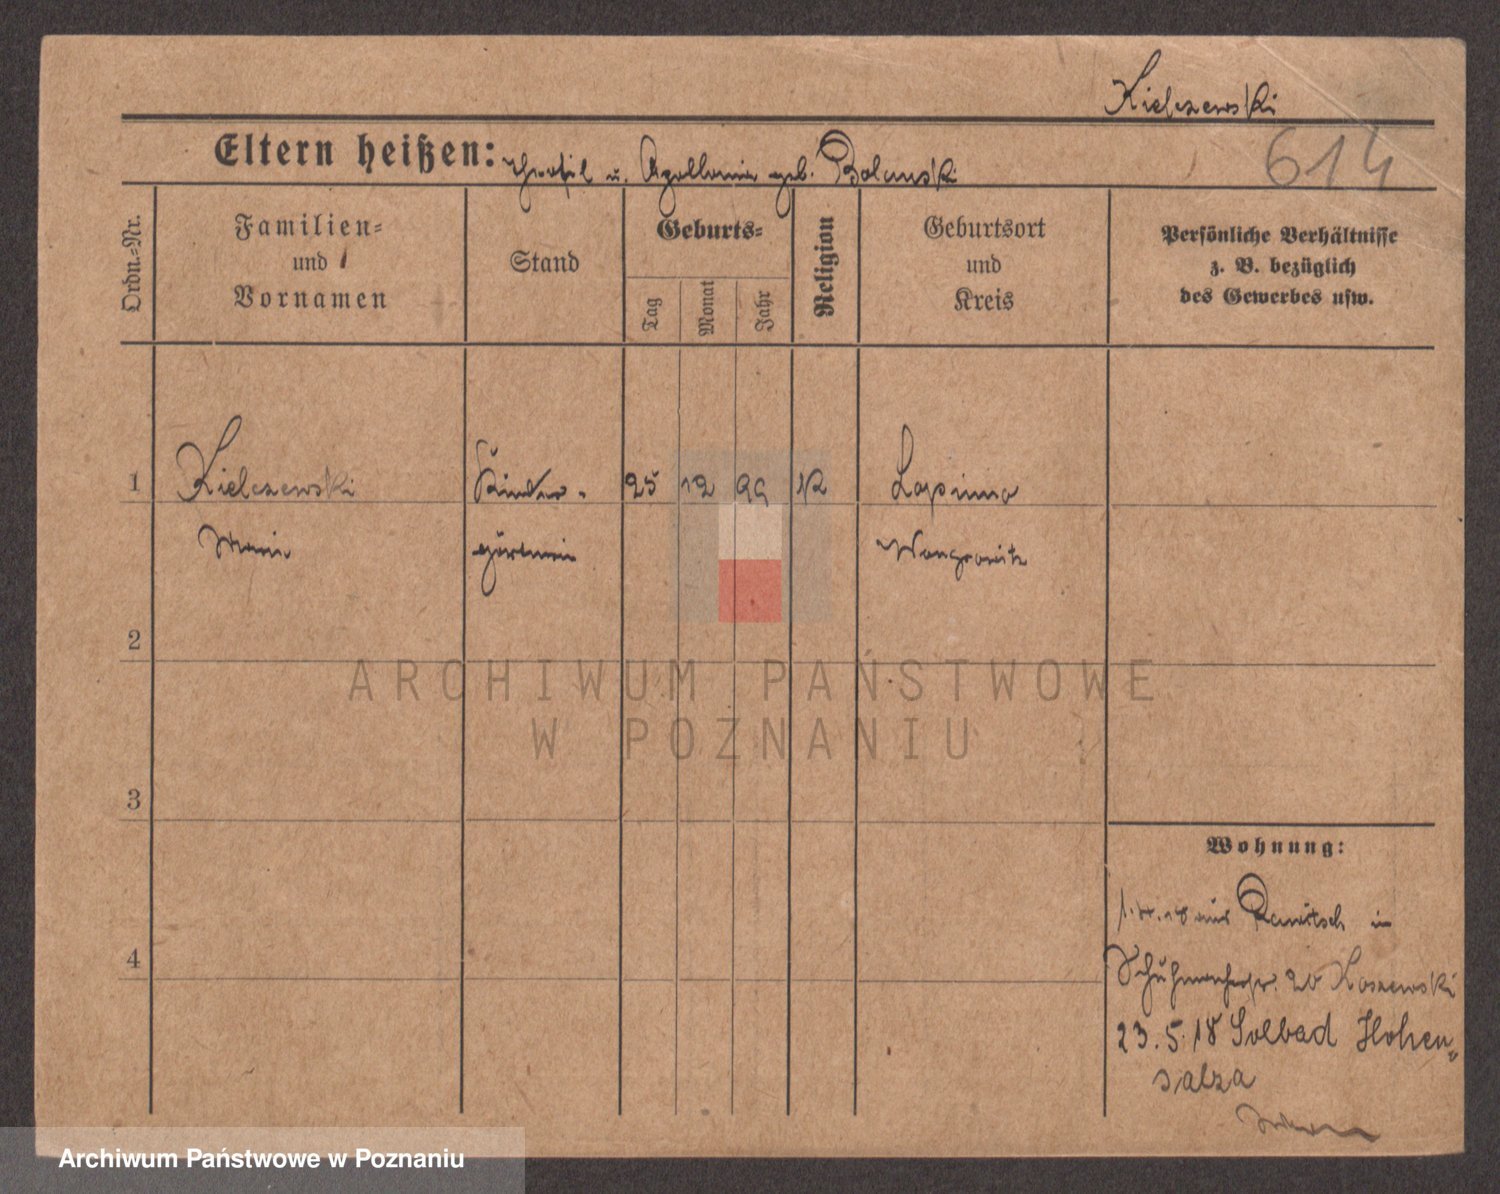 Kielczewski
614
Eltern heißen: Theofil u. Apollonia geb. Bolanski
Ordn.-Nr.
Familien-
und
Vornamen
Stand
Geburts-
Tag
Monat
Jahr
Religion
Geburtsort
und
Kreis
Persönliche Verhältnisse
z. B. bezüglich
des Gewerbes usw.
1 Kielczewski Kinder- 25 12 99 K Lopinno
Marie gärtnerin Wongrowitz
2
ARCHIWUM PAŃSTWOWE
W POZNANIU
3
Wohnung:
1.4.18 aus Rawitsch in
4
20 Koszewski
23.5.18 Solbad Hohen-
salza
Archiwum Państwowe w Poznaniu